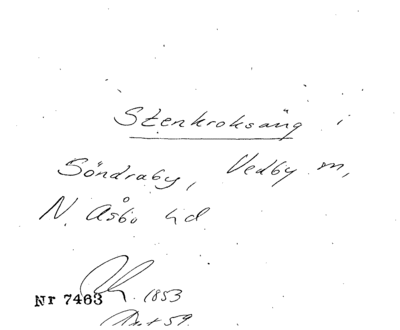 Stenkroksäng i
Söndraby, Vedby sn,
N. Åsbo hd
Nr 7463 1853
59.